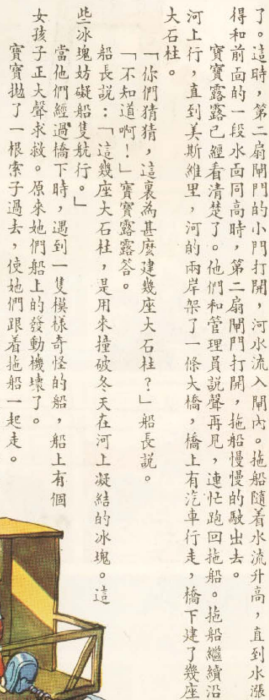 了。這時，第二扇閘門的小門打開，河水流入閘內。拖船隨着水流升高，直到水漲
得和前面的一段水面同高時，第二扇閘門打開，拖船慢慢的駛出去。
寶寶露露已經看清楚了。他們和管理員說聲再見，連忙跑回拖船。拖船繼續沿
河上行，直到美斯維里，河的兩岸架了一條大橋，橋上有汽車行走，橋下建了幾座
大石柱。
「你們猜猜，這裏為甚麼建幾座大石柱？」船長說。
「不知道啊！」寶寶露露答。
船長說：「這幾座大石柱，是用來撞破冬天在河上凝結的冰塊。這
些冰塊妨礙船隻航行。」
當他們經過橋下時，遇到一隻模樣奇怪的船，船上有個
女孩子正大聲求救。原來她們船上的發動機壞了。
寶寶拋了一根索子過去，使她們跟着拖船一起走。